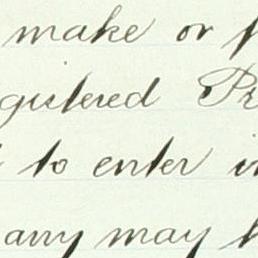 make or
gistered Pr
to enter
any may